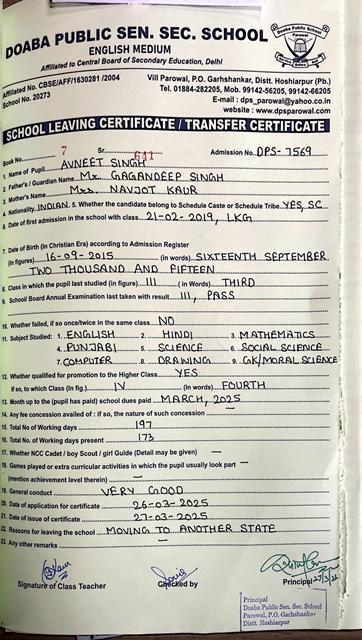 DOABA PUBLIC SEN. SEC. SCHOOL
ENGLISH MEDIUM
Affiliated to Central Board of Secondary Education, Delhi
Doaba Public School
Parowal
Affiliated No. CBSE/AFF/1630281 /2004
School No. 20273
Vill Parowal, P.O. Garhshankar, Distt. Hoshiarpur (Pb.)
Tel. 01884-282205, Mob. 99142-56205, 99142-66205
E-mail : dps_parowal@yahoo.co.in
website : www.dpsparowal.com
SCHOOL LEAVING CERTIFICATE / TRANSFER CERTIFICATE
Book No. 7 Sr. 641 Admission No. DPS-7569
1. Name of Pupil AVNEET SINGH
2. Father's / Guardian Name Mr. GAGANDEEP SINGH
3. Mother's Name Mrs. NAVJOT KAUR
4. Nationality INDIAN 5. Whether the candidate belong to Schedule Caste or Schedule Tribe YES, SC
6. Date of first admission in the school with class 21-02-2019, LKG
7. Date of Birth (In Christian Era) according to Admission Register
(In figures) 16-09-2015 (in words) SIXTEENTH SEPTEMBER
TWO THOUSAND AND FIFTEEN
8. Class in which the pupil last studied (in figure) III (in words) THIRD
9. School/ Board Annual Examination last taken with result III, PASS
10. Whether failed, if so once/twice in the same class NO
11. Subject Studied : 1. ENGLISH 2. HINDI 3. MATHEMATICS
4. PUNJABI 5. SCIENCE 6. SOCIAL SCIENCE
7. COMPUTER 8. DRAWING 9. GK/MORAL SCIENCE
12. Whether qualified for promotion to the Higher Class YES
If so, to which Class (In fig.) IV (In words) FOURTH
13. Month up to the (pupil has paid) school dues paid MARCH, 2025
14. Any fee concession availed of : if so, the nature of such concession —
15. Total No of Working days 197
16. Total No. of Working days present 173
17. Whether NCC Cadet / boy Scout / girl Guide (Detail may be given) —
18. Games played or extra curricular activities in which the pupil usually look part —
(mention achievement level therein) —
19. General conduct VERY GOOD
20. Date of application for certificate 26-03-2025
21. Date of issue of certificate 27-03-2025
22. Reasons for leaving the school MOVING TO ANOTHER STATE
23. Any other remarks —
Signature of Class Teacher Checked by Principal
Principal
Doaba Public Sen. Sec. School
P.O. Garhshankar
Distt. Hoshiarpur